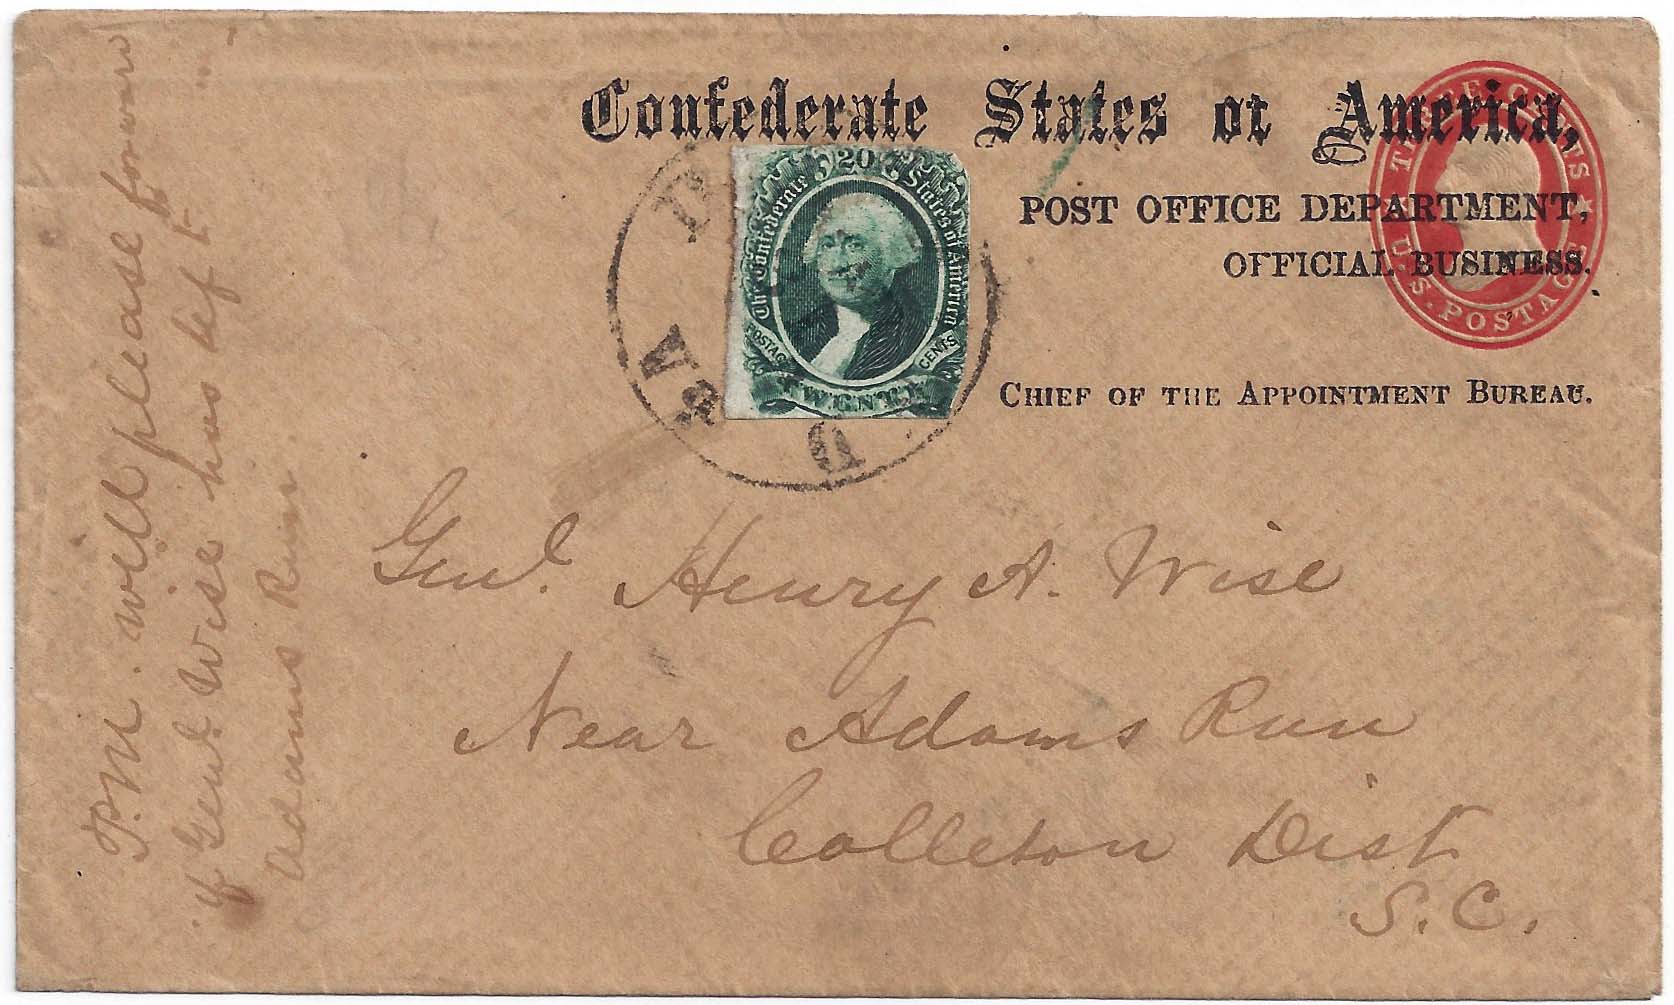 Confederate States of America,
POST OFFICE DEPARTMENT,
OFFICIAL BUSINESS.
CHIEF OF THE APPOINTMENT BUREAU.
THREE CENTS
U.S. POSTAGE
20
The Confederate States of America
POSTAGE CENTS
TWENTY
Genl. Henry A. Wise
Near Adams Run
Colleton Dist
S.C.
P.M. will please forward
if Genl. Wise has left
Adams Run.